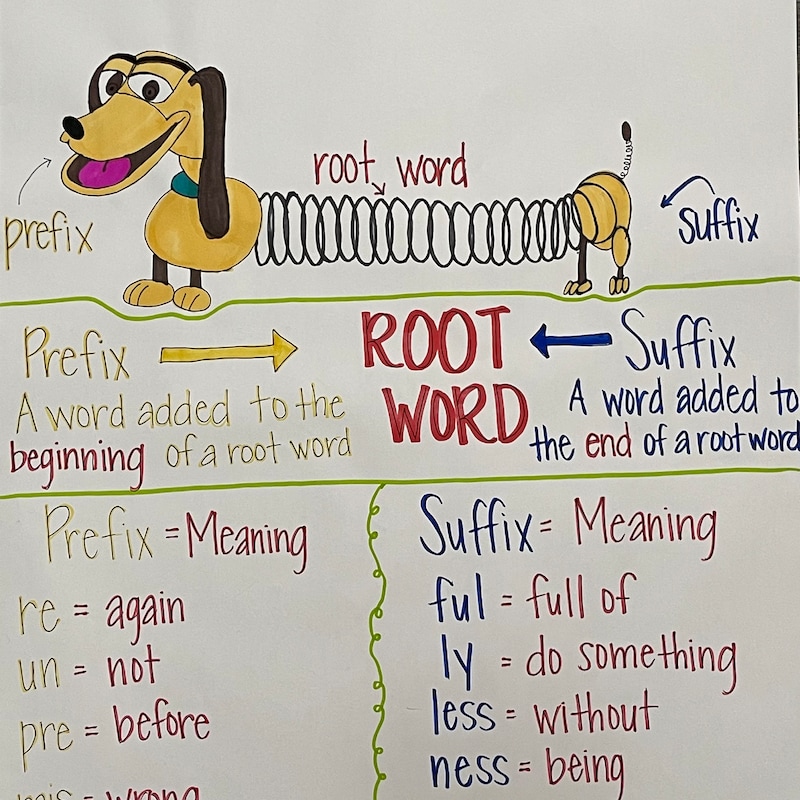 root word
prefix
suffix
Prefix
A word added to the
beginning of a root word
ROOT
WORD
Suffix
A word added to
the end of a root word
Prefix = Meaning
re = again
un = not
pre = before
mis = wrong
Suffix = Meaning
ful = full of
ly = do something
less = without
ness = being